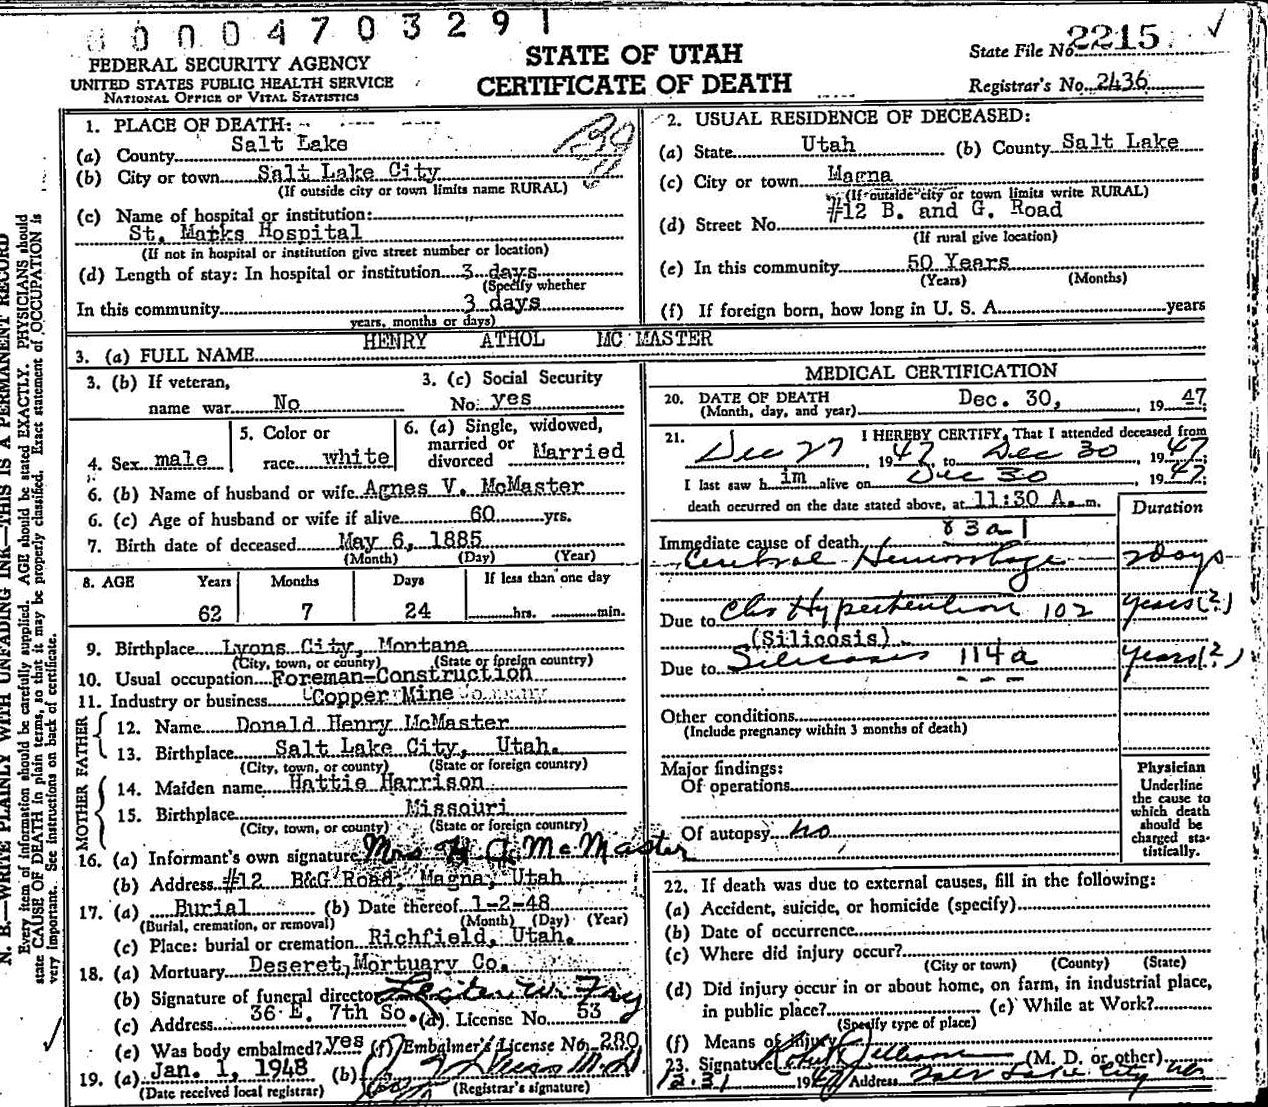 00004703291
FEDERAL SECURITY AGENCY
UNITED STATES PUBLIC HEALTH SERVICE
NATIONAL OFFICE OF VITAL STATISTICS
STATE OF UTAH
CERTIFICATE OF DEATH
State File No. 2215
Registrar's No. 2436
1. PLACE OF DEATH:
(a) County Salt Lake
(b) City or town Salt Lake City
(If outside city or town limits name RURAL)
(c) Name of hospital or institution:
St. Marks Hospital
(If not in hospital or institution give street number or location)
(d) Length of stay: In hospital or institution 3 days
(Specify whether
In this community 3 days
years, months or days)
2. USUAL RESIDENCE OF DECEASED:
(a) State Utah (b) County Salt Lake
(c) City or town Magna
(If outside city or town limits write RURAL)
(d) Street No. #12 B. and G. Road
(If rural give location)
(e) In this community 50 Years
(Years) (Months)
(f) If foreign born, how long in U. S. A. years
3. (a) FULL NAME HENRY ATHOL MC MASTER
3. (b) If veteran,
name war No
3. (c) Social Security
No. yes
4. Sex male
5. Color or
race white
6. (a) Single, widowed,
married or
divorced Married
6. (b) Name of husband or wife Agnes V. McMaster
6. (c) Age of husband or wife if alive 60 yrs.
7. Birth date of deceased May 6, 1885
(Month) (Day) (Year)
8. AGE Years Months Days If less than one day
62 7 24 hrs. min.
9. Birthplace Lyons City, Montana
(City, town, or county) (State or foreign country)
10. Usual occupation Foreman-Construction
11. Industry or business Copper Mine
FATHER
12. Name Donald Henry McMaster
13. Birthplace Salt Lake City, Utah.
(City, town, or county) (State or foreign country)
MOTHER
14. Maiden name Hattie Harrison
15. Birthplace Missouri
(City, town, or county) (State or foreign country)
16. (a) Informant's own signature Mrs H A McMaster
(b) Address #12 B&G Road, Magna, Utah
17. (a) Burial (b) Date thereof 1-2-48
(Burial, cremation, or removal) (Month) (Day) (Year)
(c) Place: burial or cremation Richfield, Utah.
18. (a) Mortuary Deseret Mortuary Co.
(b) Signature of funeral director
(c) Address 36 E. 7th So. (d) License No. 53
(e) Was body embalmed? yes (f) Embalmer's License No. 280
19. (a) Jan. 1, 1948 (b)
(Date received local registrar) (Registrar's signature)
MEDICAL CERTIFICATION
20. DATE OF DEATH
(Month, day, and year) Dec. 30, 1947
21. I HEREBY CERTIFY, That I attended deceased from
Dec 27, 1947 to Dec 30 1947
I last saw him alive on Dec 30 1947
death occurred on the date stated above, at 11:30 A. m.
Duration
83a1
Immediate cause of death
Cerebral Hemorrhage 2 Days
Due to Chr Hypertention 102 years(?)
(Silicosis)
Due to Silicosis 114a years(?)
Other conditions
(Include pregnancy within 3 months of death)
Major findings:
Of operations
Of autopsy no
Physician
Underline
the cause to
which death
should be
charged sta-
tistically.
22. If death was due to external causes, fill in the following:
(a) Accident, suicide, or homicide (specify)
(b) Date of occurrence
(c) Where did injury occur?
(City or town) (County) (State)
(d) Did injury occur in or about home, on farm, in industrial place,
in public place? (e) While at Work?
(Specify type of place)
(f) Means of injury
23. Signature (M. D. or other)
12.31 1947 Address Salt Lake City
N. B.—WRITE PLAINLY WITH UNFADING INK—THIS IS A PERMANENT RECORD
Every item of information should be carefully supplied. AGE should be stated EXACTLY. PHYSICIANS should
state CAUSE OF DEATH in plain terms, so that it may be properly classified. Exact statement of OCCUPATION is
very important. See instructions on back of certificate.